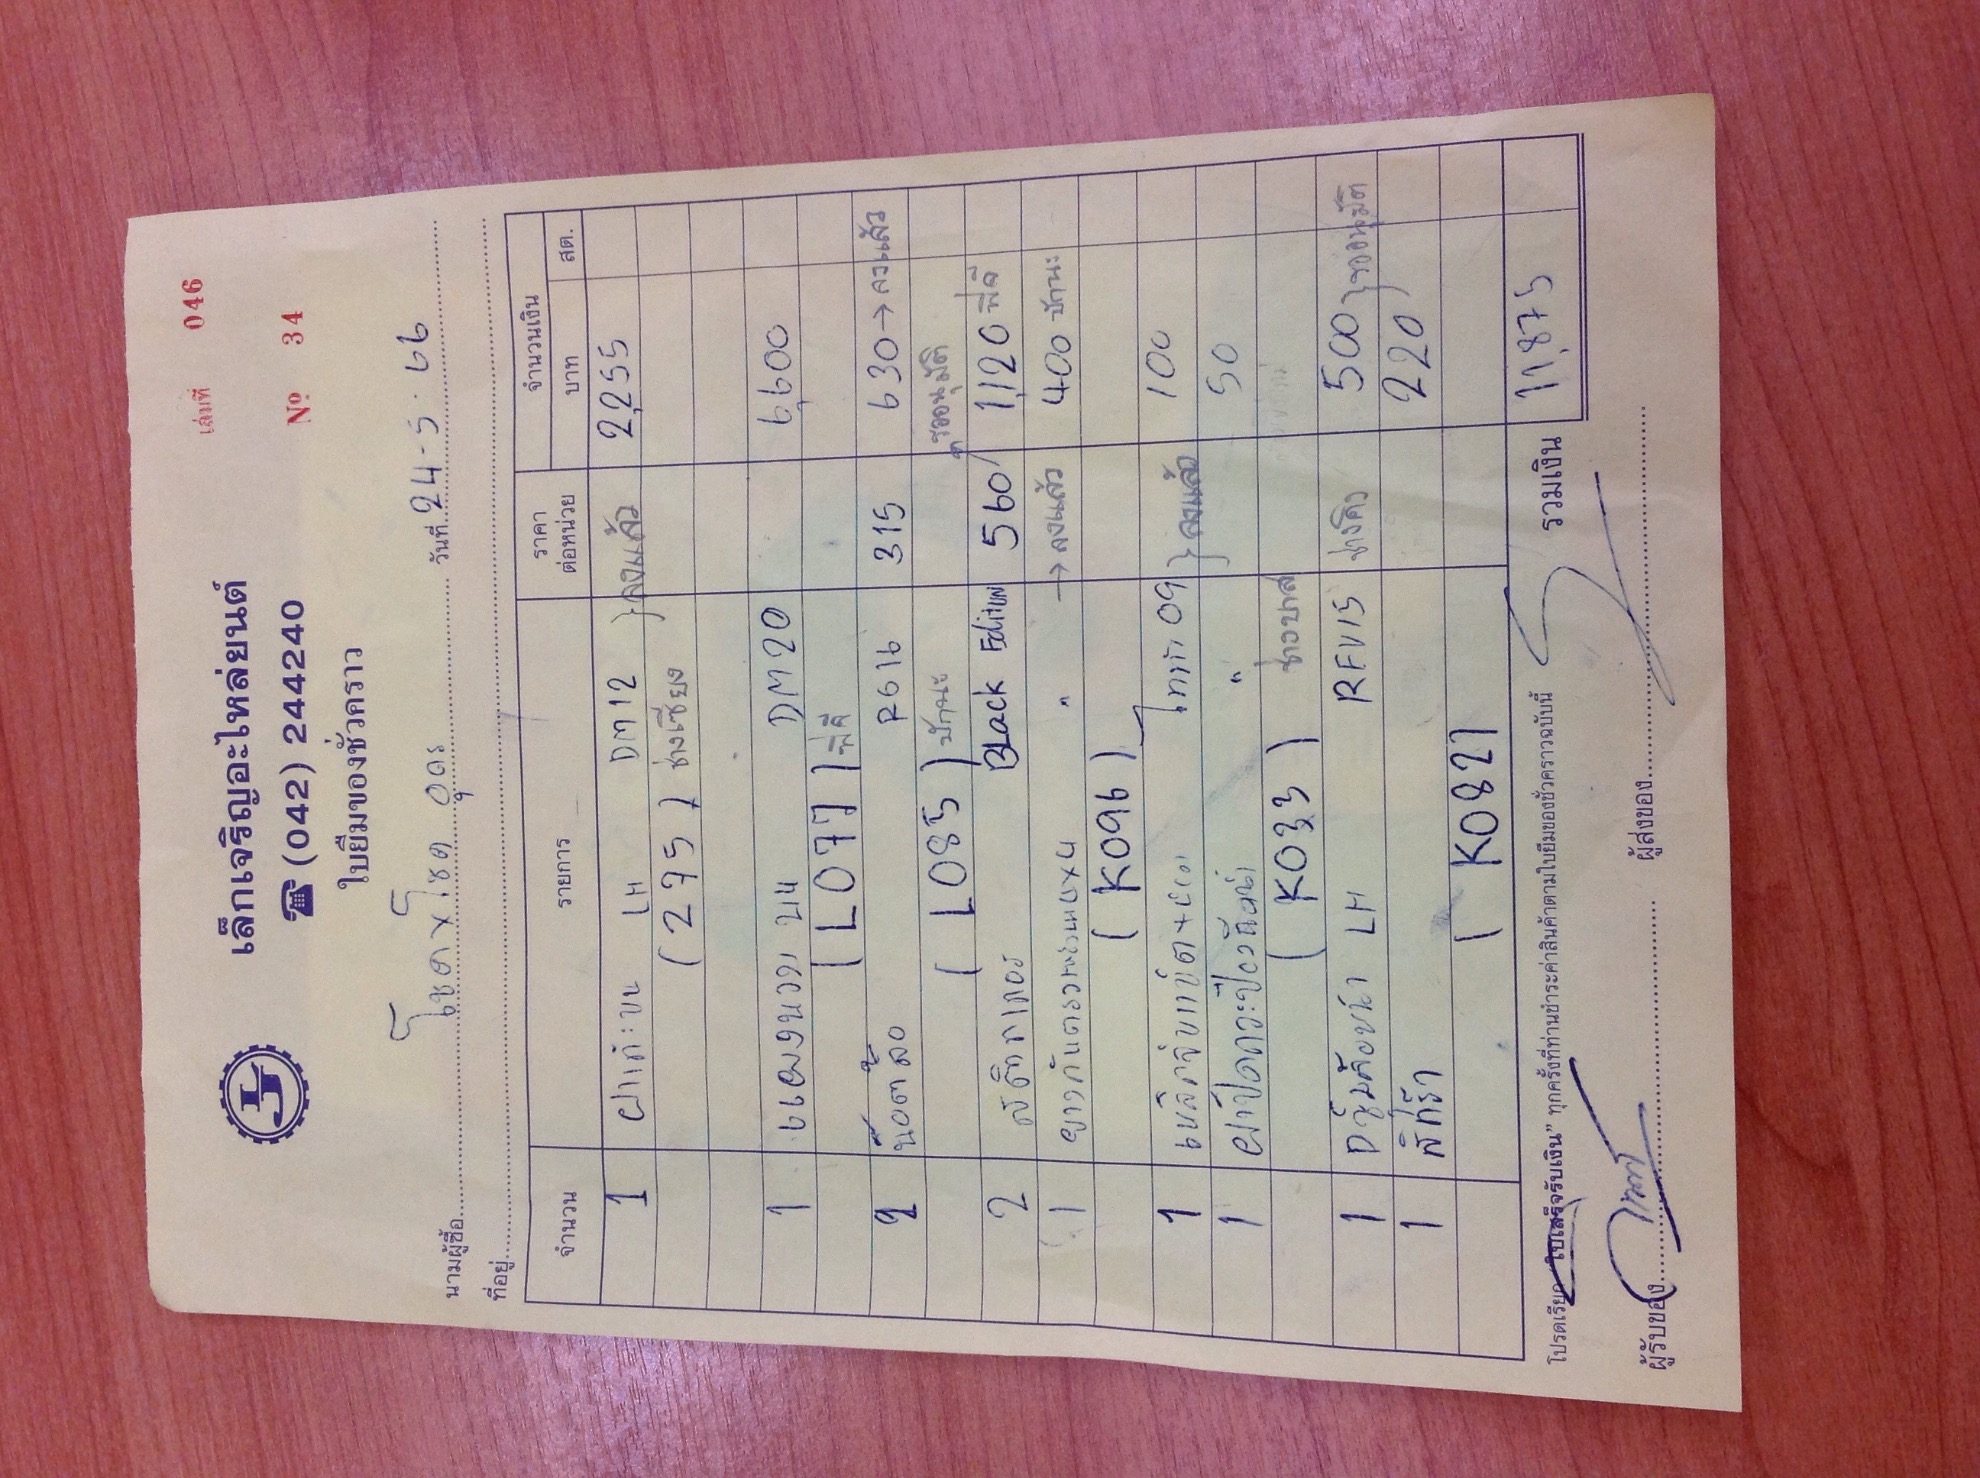 เล่มที่ 046
เล็กเจริญอะไหล่ยนต์
☎ (042) 244240
Nº 34
ใบยืมของชั่วคราว
นามผู้ซื้อ โชคชูโชต อุดร วันที่ 24-5-66
ที่อยู่
จำนวน รายการ ราคาต่อหน่วย จำนวนเงิน
บาท สต.
1 ฝาท้ายบน LH DM12 } ลงแล้ว 2,255
(275) ช่างเซียง
1 แผงนวด บน DM20 6,600
(L077) พี่ดี
2 น๊อตล้อ RG16 315 630 → ลงแล้ว
(L085) ปัทนะ รออนุมัติ
2 สติกเกอร์ Black Edition 560/ 1,120 พี่ดี
1 → ลงแล้ว 400 ปัทนะ
(K096)
1 ไททัน 09 } ลงแล้ว 100
1 " 50
(K033) ช่างปาส
1 LH RFV15 ช่างคิว 500 } รออนุมัติ
1 220
(K082)
รวมเงิน 11,875
โปรดเรียก "ใบเสร็จรับเงิน" ทุกครั้งที่ท่านชำระค่าสินค้าตามใบยืมของชั่วคราวฉบับนี้
ผู้รับของ ผู้ส่งของ